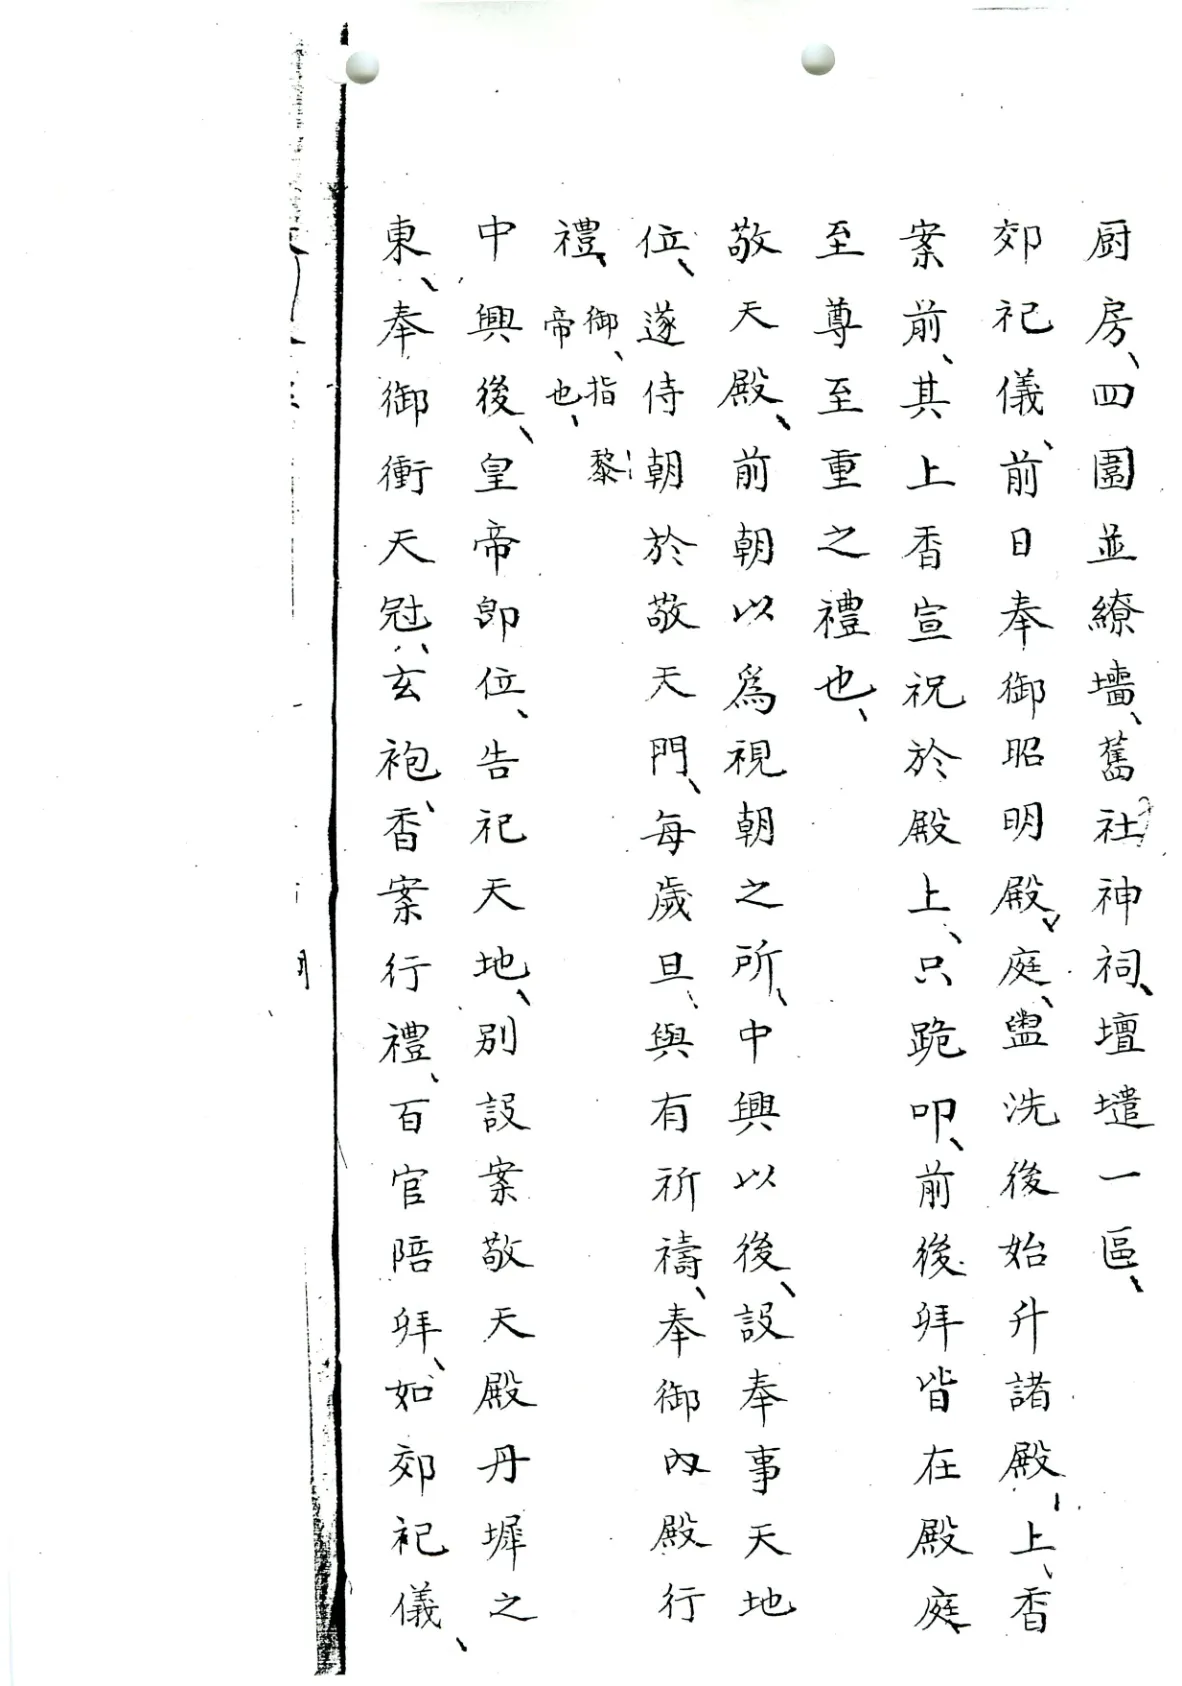 厨房、四圍並繚墻、舊社神祠、壇壝一區、
郊祀儀、前日奉御昭明殿、庭、盥洗後始升諸殿、上、香
案前、其上香宣祝於殿上、只跪叩、前後拜皆在殿庭
至尊至重之禮也、
敬天殿、前朝以爲視朝之所、中興以後、設奉事天地
位、遂侍朝於敬天門、每歲旦、與有祈禱、奉御內殿行
禮、御、指黎帝也、
中興後、皇帝卽位、告祀天地、別設案敬天殿丹墀之
東、奉御衝天冠、玄袍、香案行禮、百官陪拜、如郊祀儀、